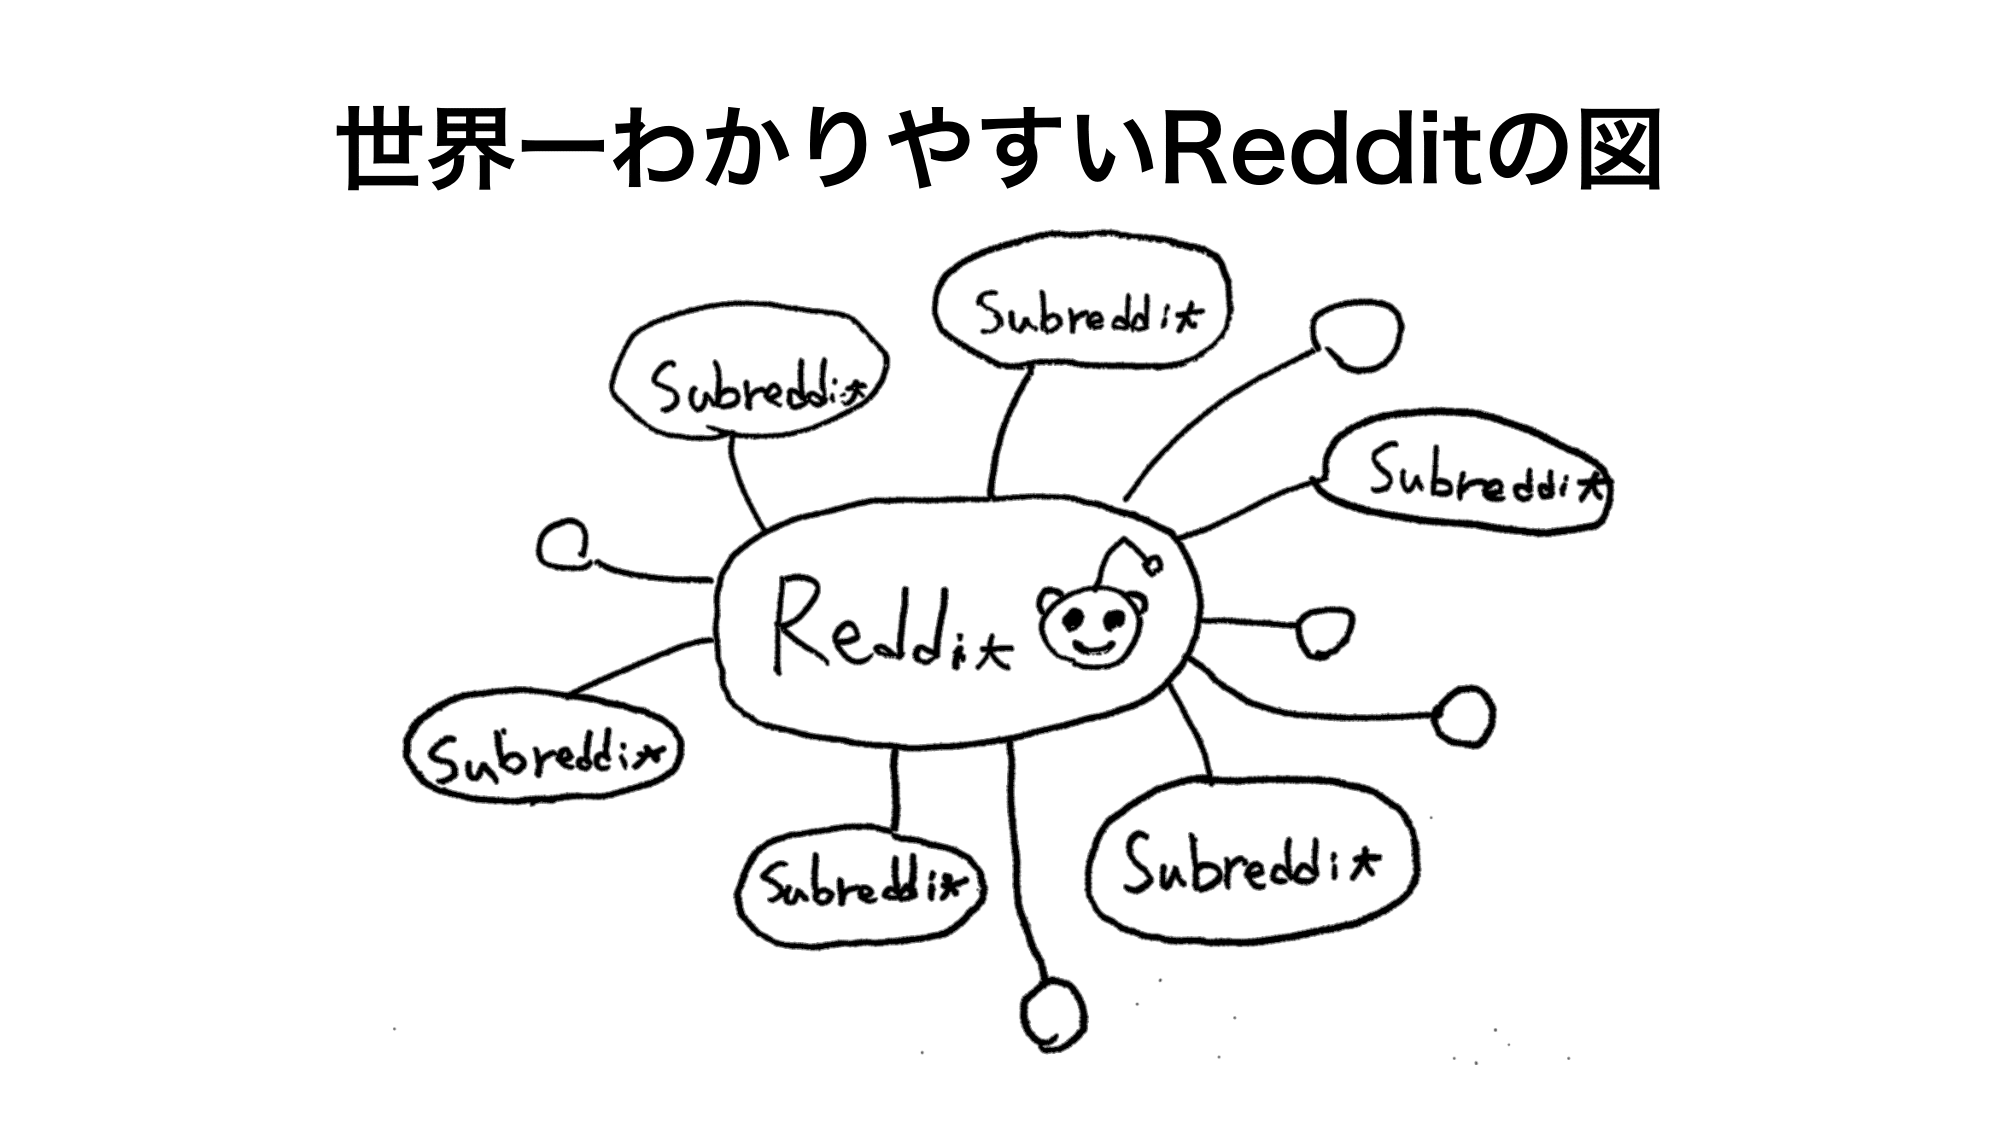 世界一わかりやすいRedditの図
Subreddit
Subreddit
Subreddit
Reddit
Subreddit
Subreddit
Subreddit